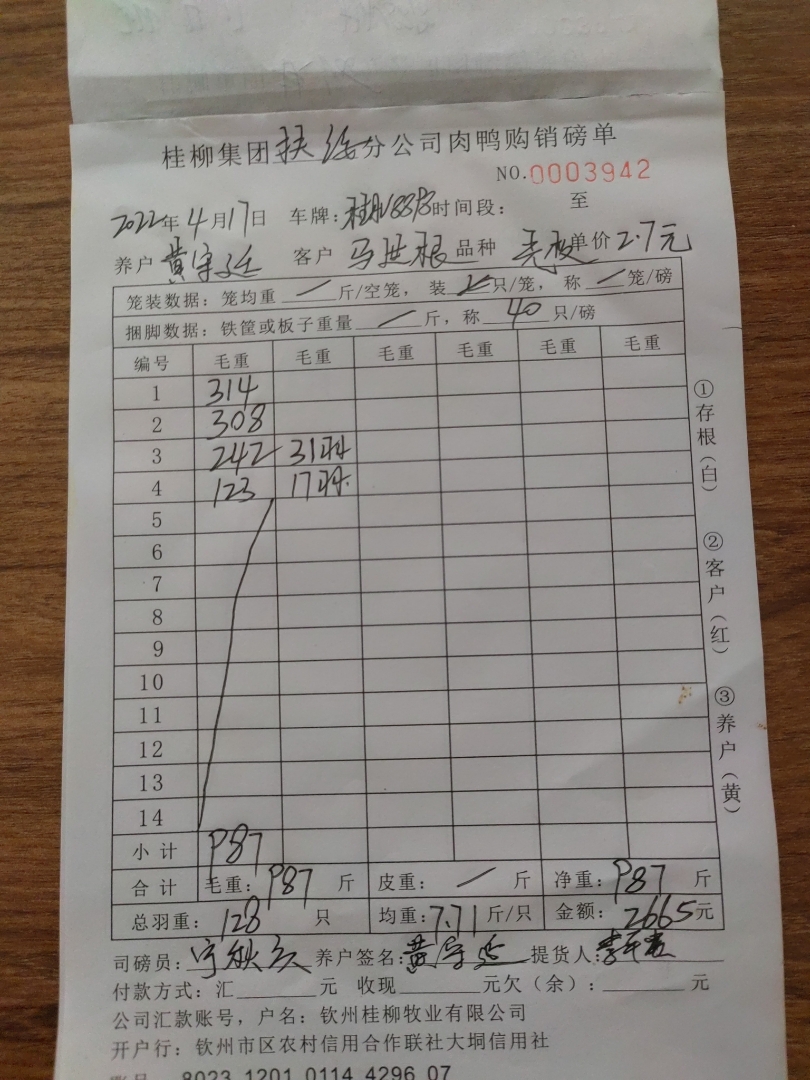 桂柳集团扶绥分公司肉鸭购销磅单
NO.0003942
2022年4月17日 车牌: 时间段: 至
养户 黄宇廷 客户 马进根 品种 单价2.7元
笼装数据: 笼均重 / 斤/空笼, 装 只/笼, 称 / 笼/磅
捆脚数据: 铁筐或板子重量 / 斤, 称 40 只/磅
编号 毛重 毛重 毛重 毛重 毛重 毛重
1 314
2 308
3 242 31羽
4 123 17羽
5
6
7
8
9
10
11
12
13
14
小计 987
合计 毛重: 987 斤 皮重: / 斤 净重: 987 斤
总羽重: 128 只 均重: 7.71 斤/只 金额: 2665元
司磅员: 养户签名: 黄宇廷 提货人:
付款方式: 汇 元 收现 元欠(余): 元
公司汇款账号, 户名: 钦州桂柳牧业有限公司
开户行: 钦州市区农村信用合作联社大垌信用社
账号 8023 1201 0114 4296 07
①存根(白)
②客户(红)
③养户(黄)